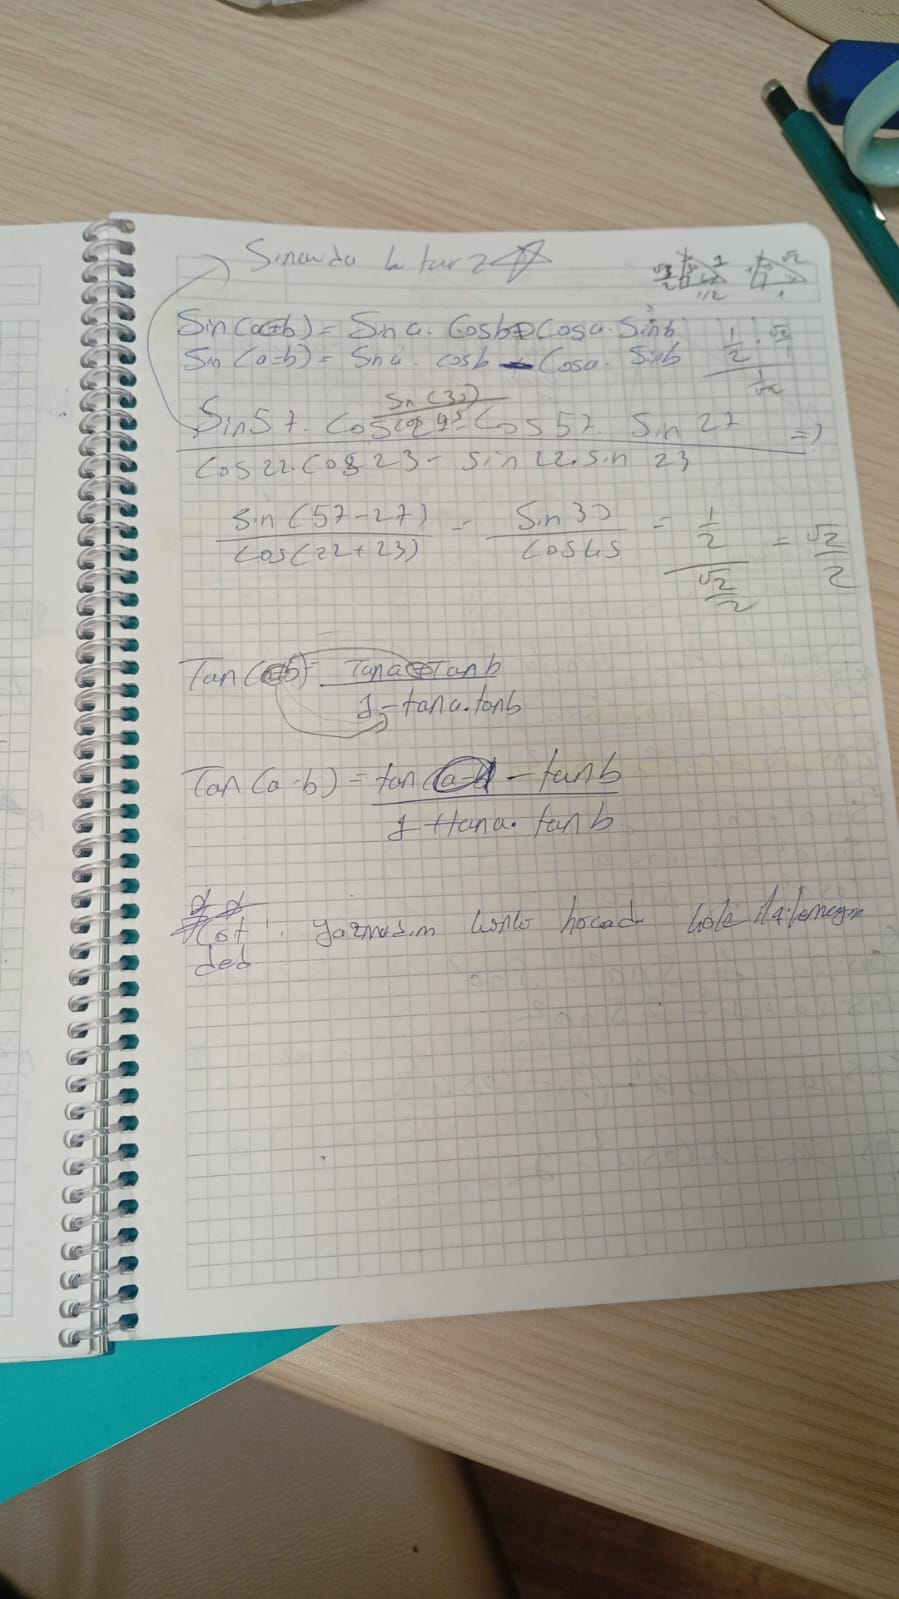 Sınavda bu tarz
√3/2 1 1/2 √2 1 1
Sin(a+b) = Sin a. Cosb + Cosa. Sinb
Sin (a-b) = Sin a. cosb - Cosa. Sinb
1/2 . √2/1
1/√2
Sin(30)
cos 45
Sin57. Cos27 - Cos 57. Sin 27 => ?
Cos 22. Cos 23 - sin 22. sin 23
Sin (57-27) / Cos(22+23) = Sin 30 / Cos45 = 1/2 / √2/2 = √2/2
Tan(a+b) = Tana + Tan b
1 - tana.tanb
Tan(a-b) = tan a - tan b
1 + tana. tan b
Cot . yazmadım hocada
dedi